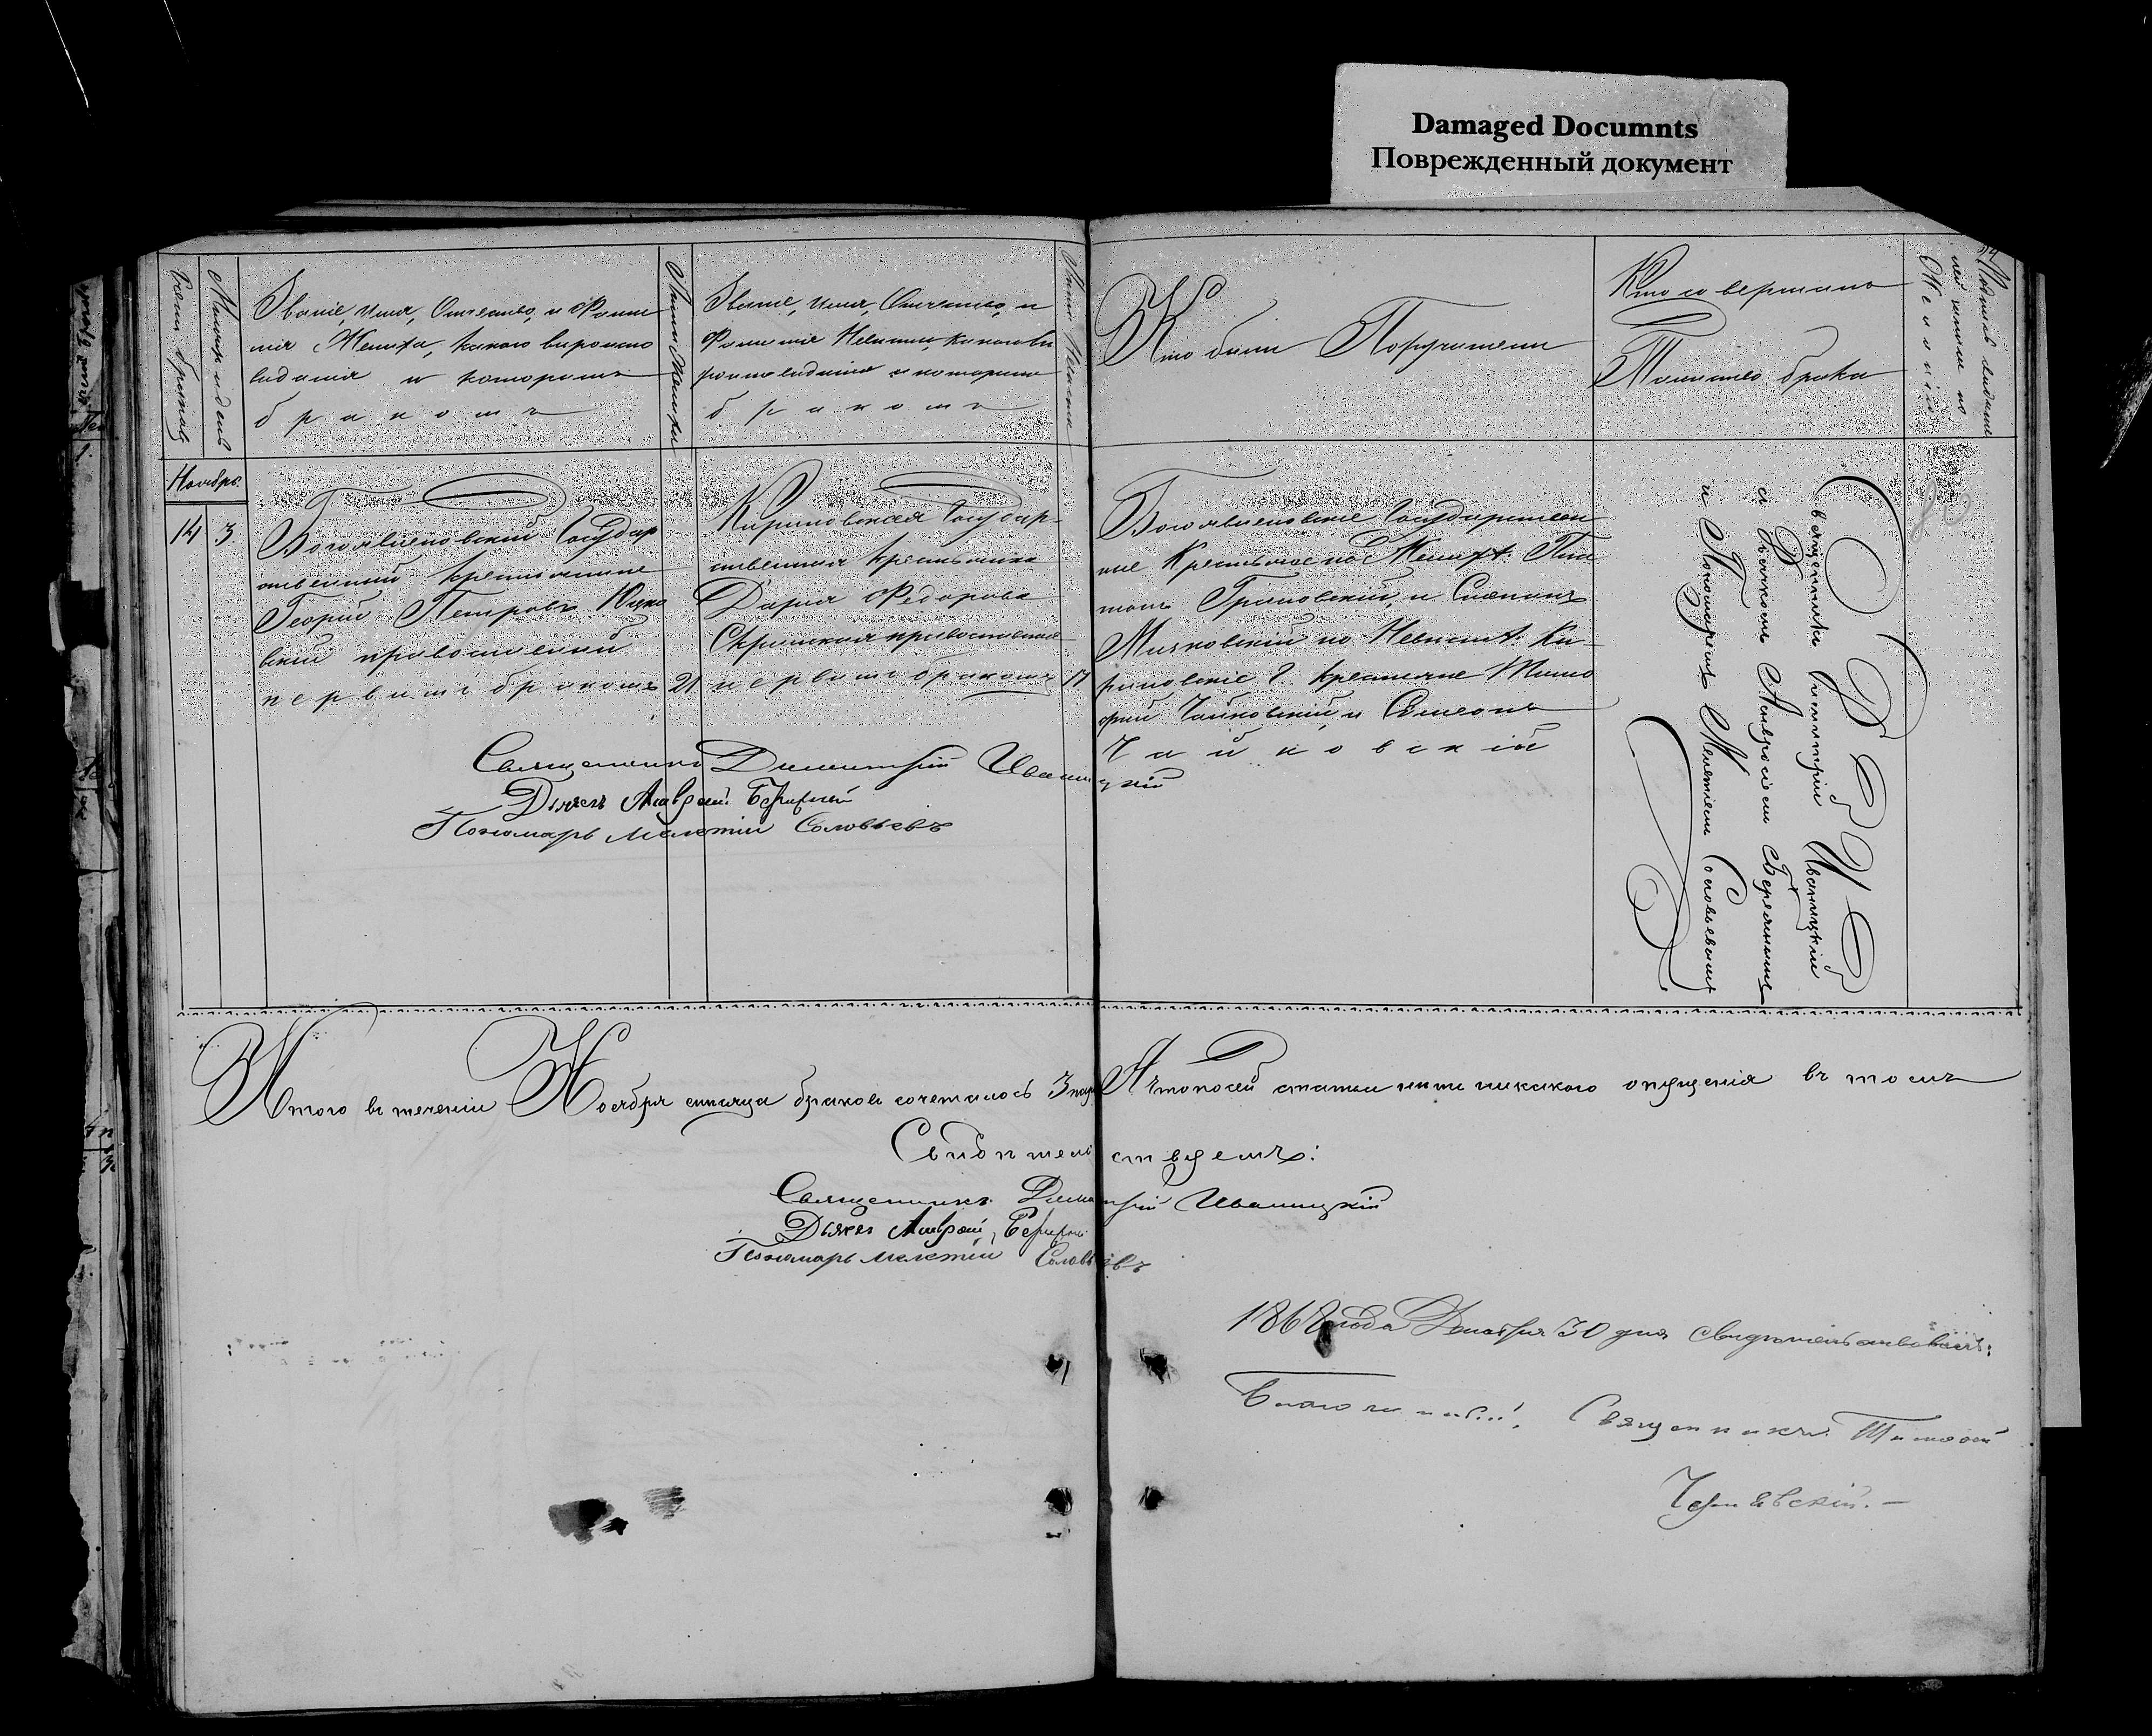 Damaged Documnts
Поврежденный документ
Счетъ браковъ
Мѣсяцъ и день
Званіе, имя, Отчество, и Фами
лія Жениха, какого вѣроиспо
веданія и которымъ
бракомъ
Лѣта Жениха
Званіе, имя, Отчество, и
Фамиліе Невѣсты, какого вѣ
роисповеданія и которымъ
бракомъ
Лѣта Невѣсты
Кто были Поручители
Кто совершалъ
Таинство брака
Ноябрь.
14 3
Богоявленовскій Государ
ственный крестьянинъ
Георгій Петровъ
православный
первымъ бракомъ 21
Кириловская Государ-
ственная крестьянка
Дарія Федорова
православная
первымъ бракомъ 17
Богоявленовскіе Государствен
ные Крестьяне по Женихѣ: Пла
тонъ Грановскій, и Степанъ
по Невѣстѣ: Ки-
риловскіе Г. крестьяне Тимо
фей Чайковскій и Симеонъ
Чайковскій
Священникъ Димитрій Иваницкій
Дьячекъ Амвросій
Пономарь Мелетій Соловьевъ
Священникъ Димитрій Иваницкій
съ Дьячкомъ Амвросіемъ
и Пономаремъ Мелетіемъ Соловьевымъ
Итого въ теченіи Ноября мѣсяца браковъ сочеталось 3 пары А что по сей статьи нѣтъ никакого опущенія въ томъ
Свидѣтельствуемъ:
Священникъ Димитрій Иваницкій
Дьячекъ Амвросій
Пономарь Мелетій Соловьевъ
1868 года Декабря 30 дня свидѣтельствовалъ:
Благочинный, Священникъ Тимофей
Чернявскій. —